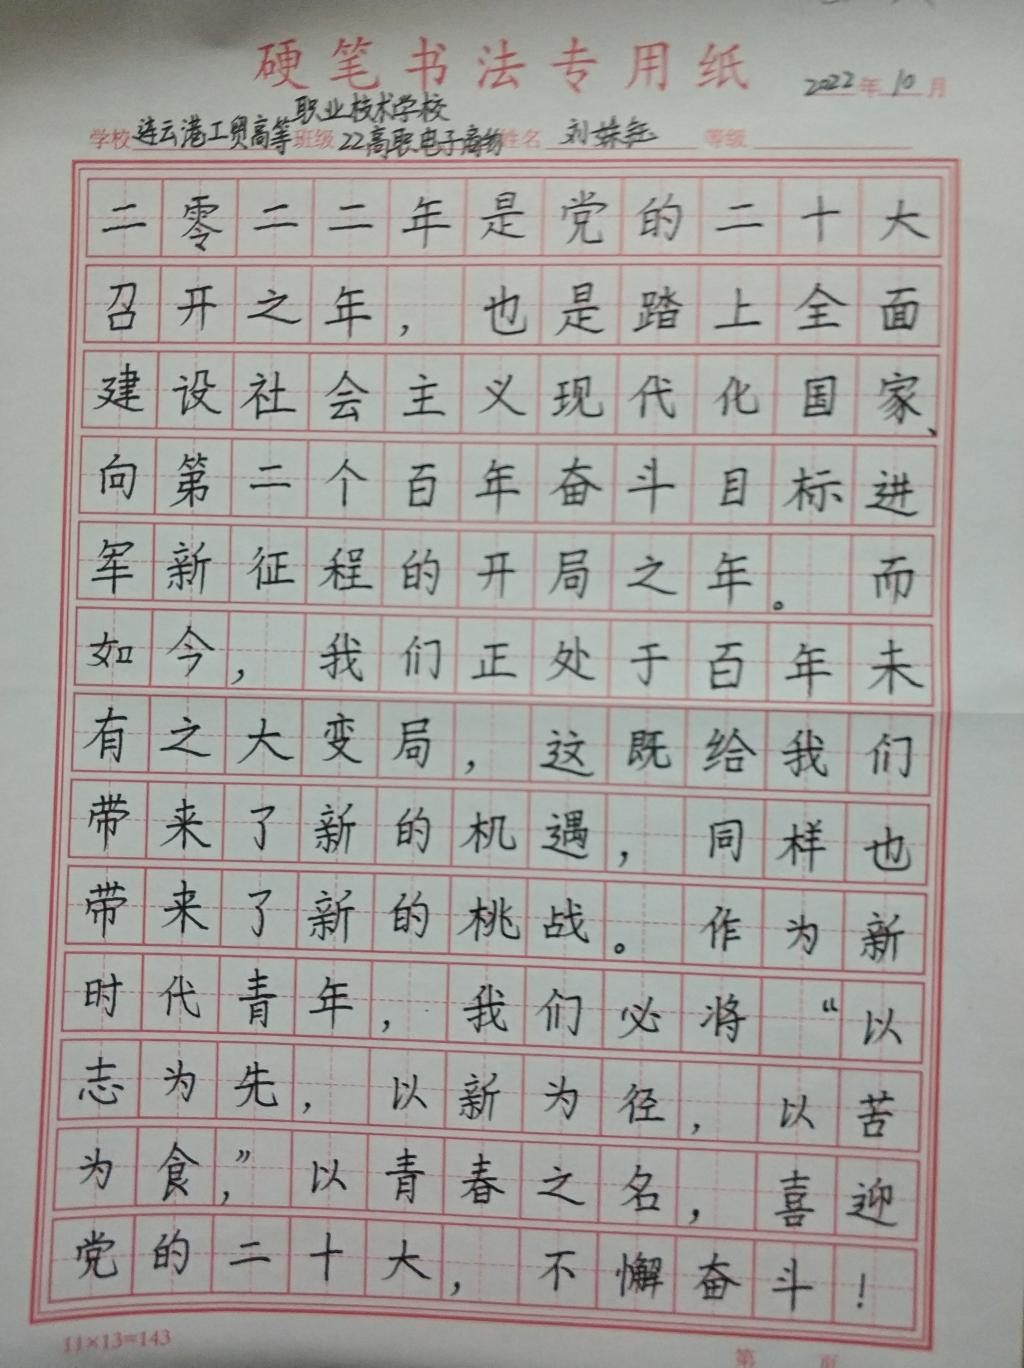 硬笔书法专用纸
2022年10月
职业技术学校
学校 连云港工贸高等 班级 22高职电子商务 姓名 刘姝 等级
二零二二年是党的二十大
召开之年，也是踏上全面
建设社会主义现代化国家、
向第二个百年奋斗目标进
军新征程的开局之年。而
如今，我们正处于百年未
有之大变局，这既给我们
带来了新的机遇，同样也
带来了新的挑战。作为新
时代青年，我们必将“以
志为先，以新为径，以苦
为食，”以青春之名，喜迎
党的二十大，不懈奋斗！
11×13=143
第 页